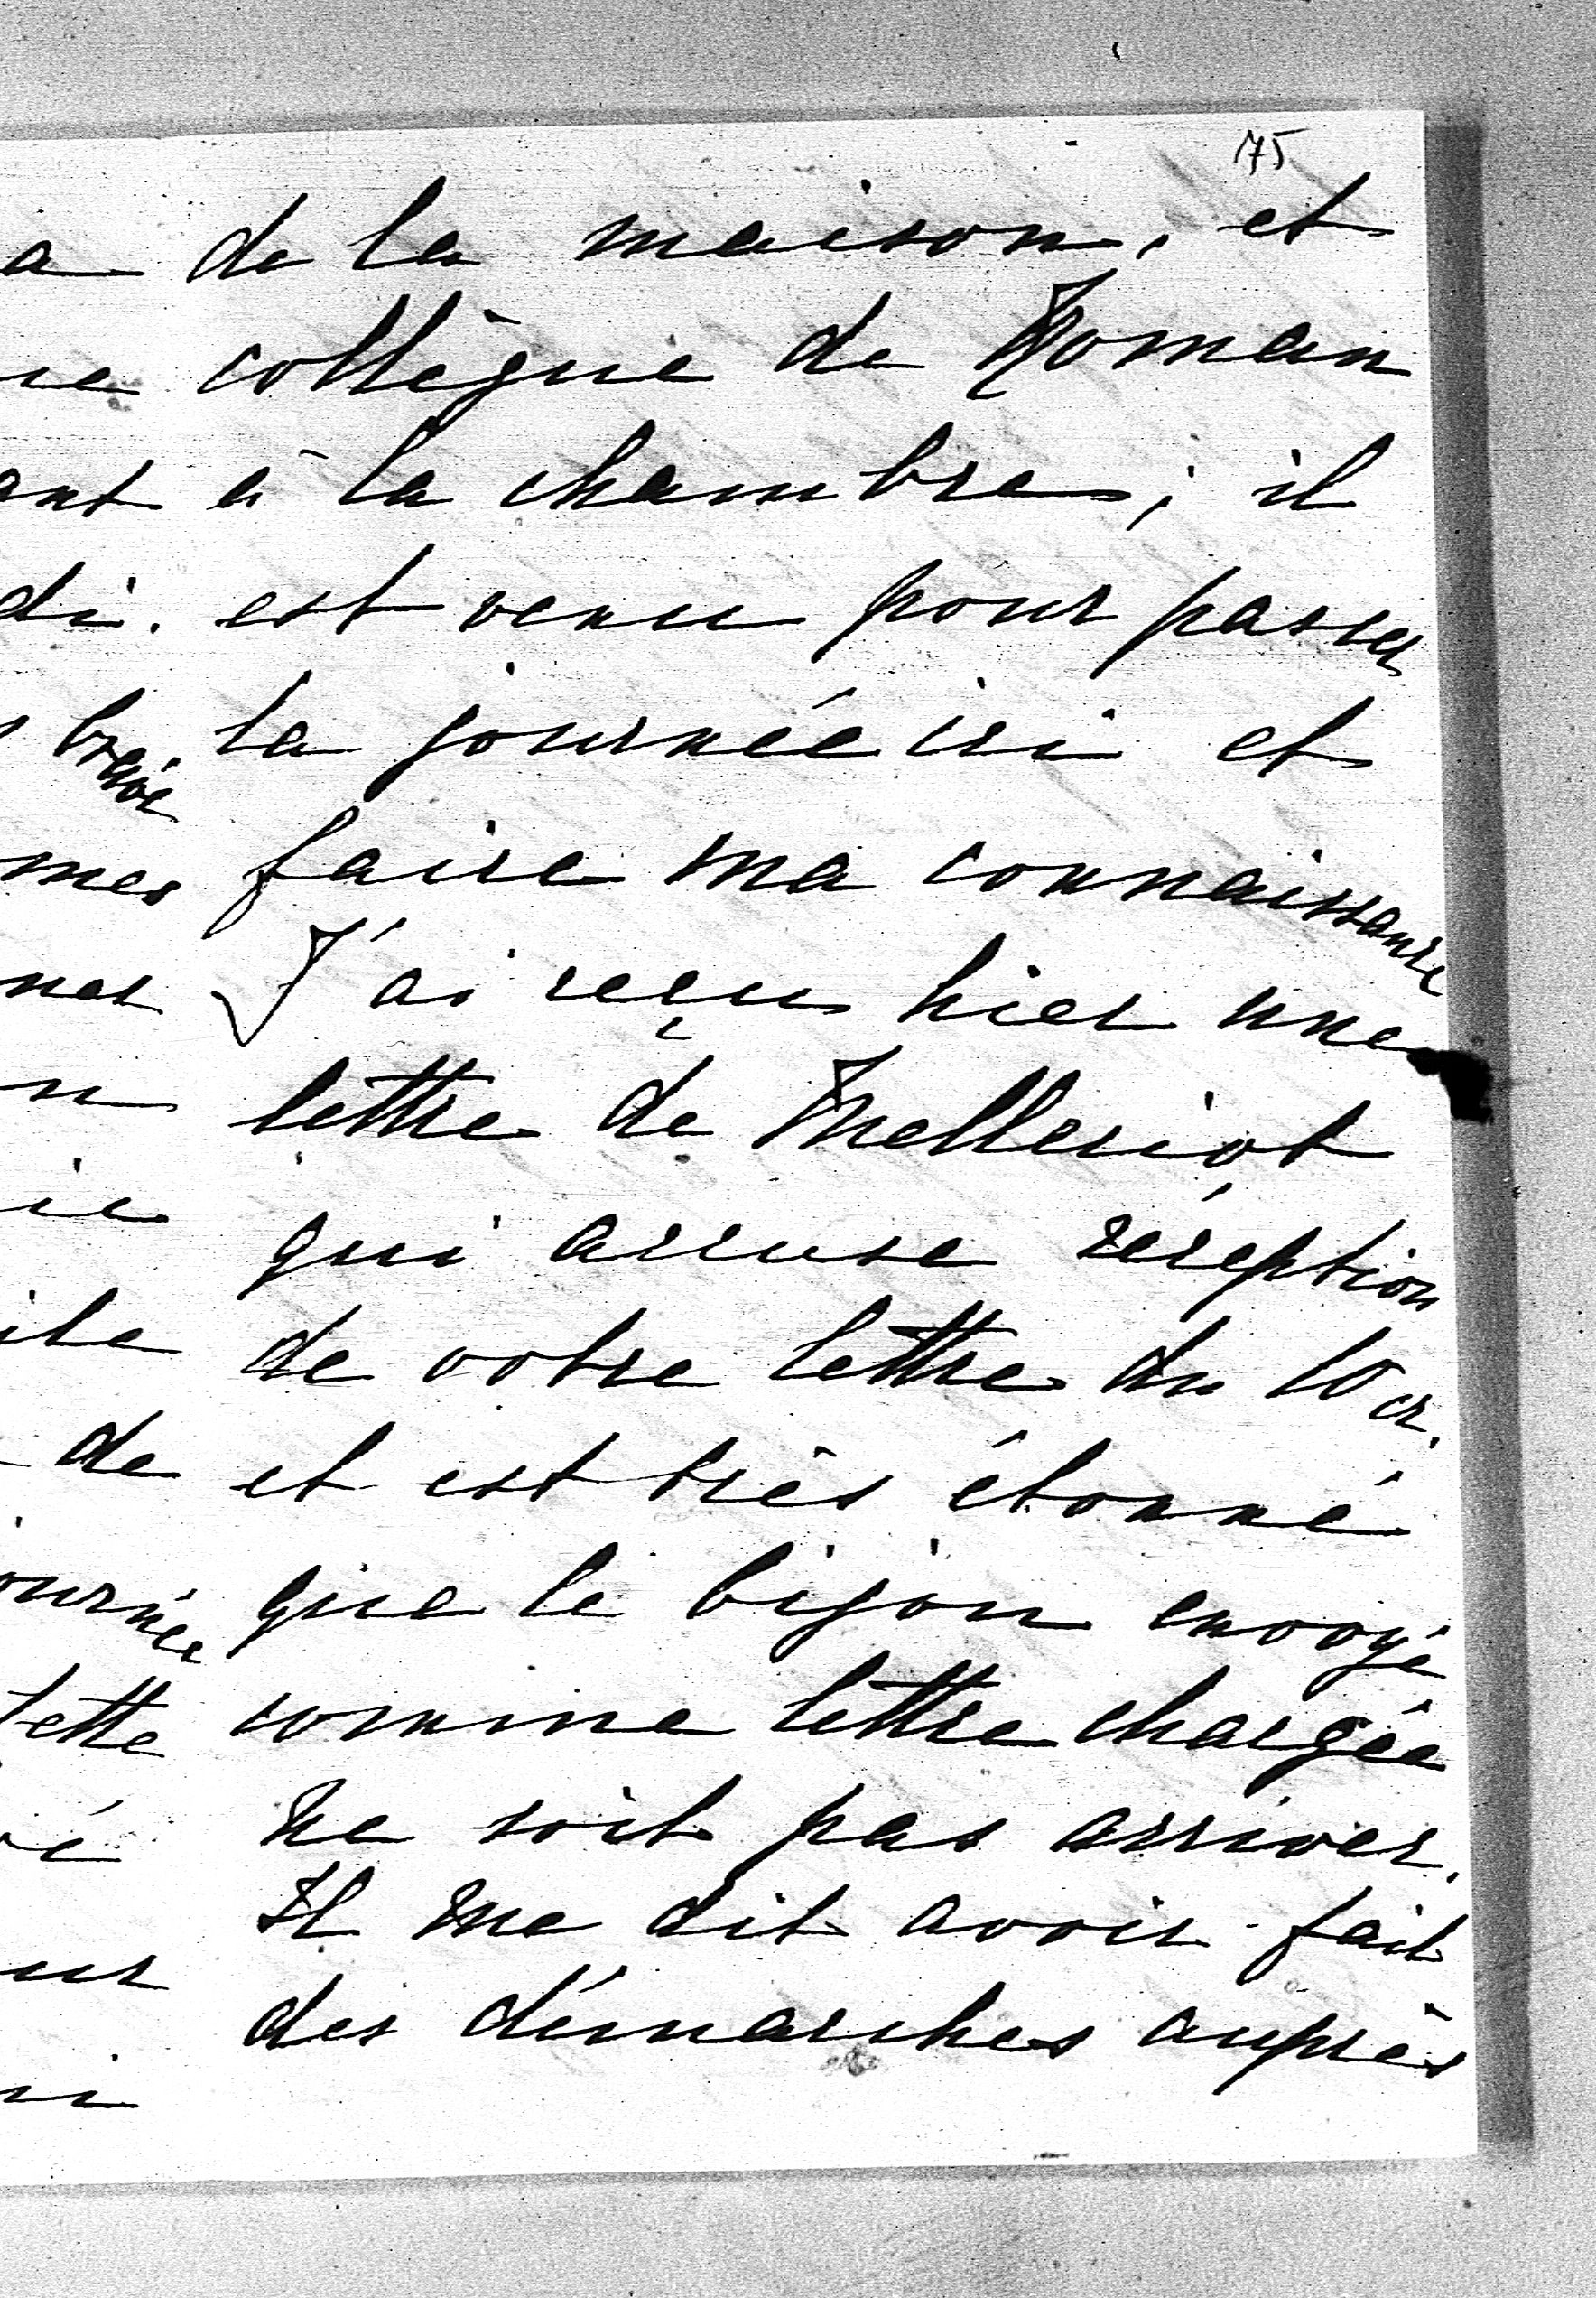 75
de la maison, et
collègue de Roman
à la chambre; il
est venu pour passer
la journée ici et
faire ma connaissance
J'ai reçu hier une
lettre de Melleriot
qui accuse réception
de votre lettre du 10 cr.
et est très étonné
que le bijou envoyé
comme lettre chargée
ne soit pas arriver.
Il me dit avoir fait
des démarches auprès